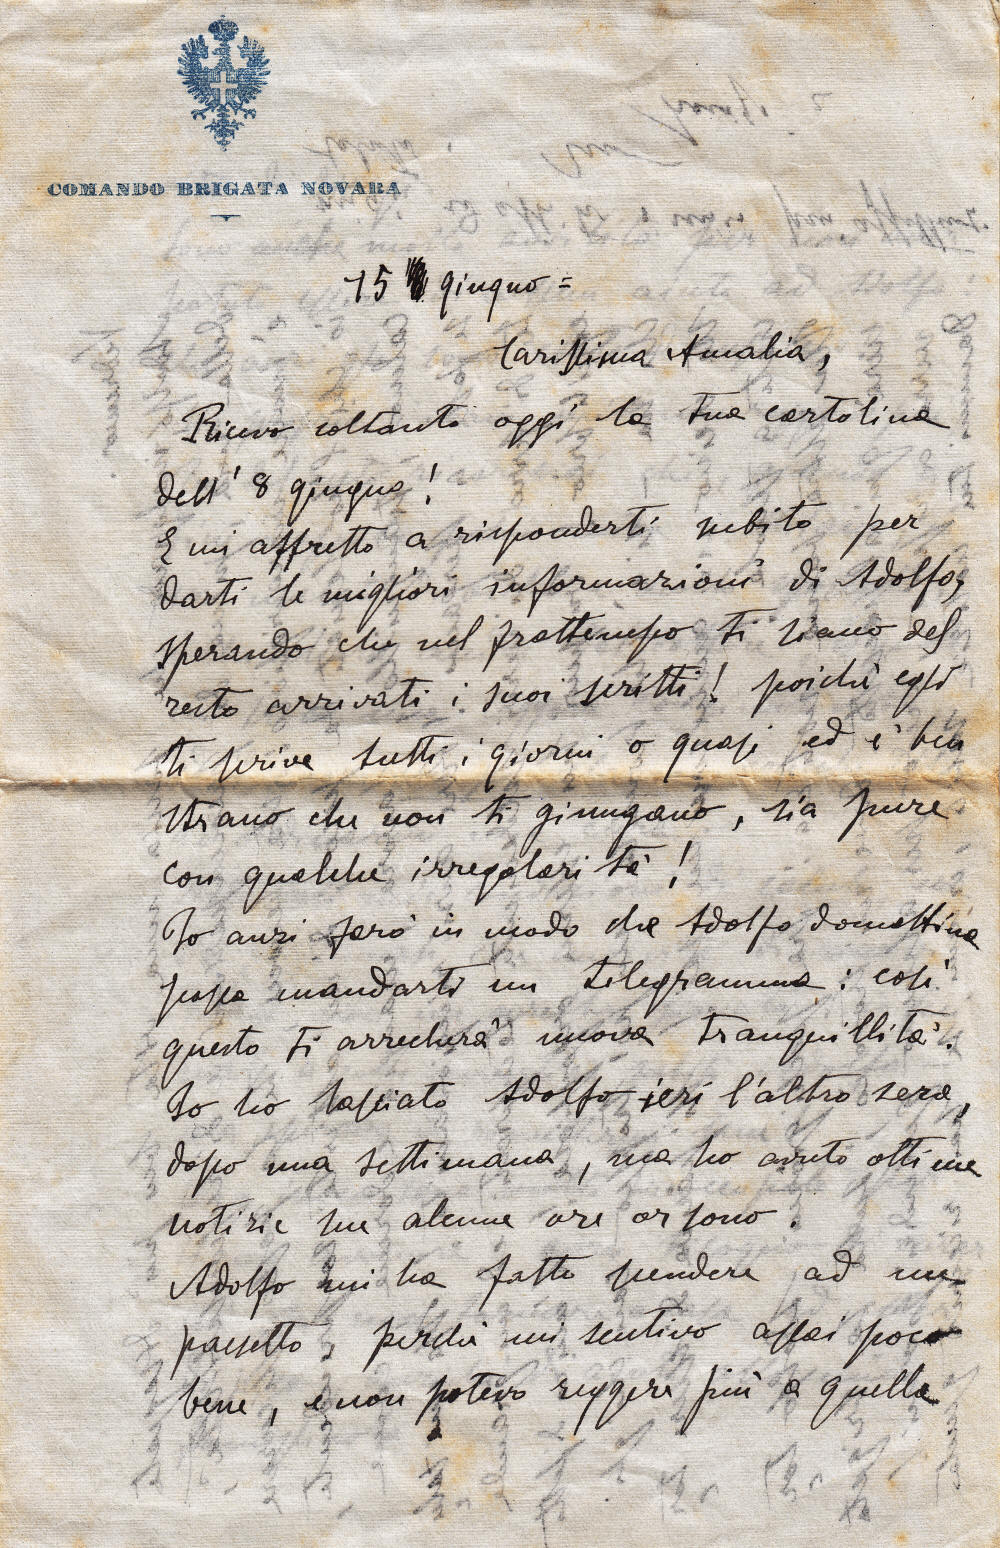 COMANDO BRIGATA NOVARA
15 giugno =
Carissima Amalia,
Ricevo soltanto oggi la tua cartolina
dell' 8 giugno!
E mi affretto a risponderti subito per
darti le migliori informazioni di Adolfo,
sperando che nel frattempo ti siano del
resto arrivati i suoi scritti! poichè egli
ti scrive tutti i giorni o quasi ed è ben
strano che non ti giungano, sia pure
con qualche irregolarità!
Io anzi farò in modo che Adolfo domattina
possa mandarti un telegramma: così
questo ti arrecherà nuova tranquillità.
Io ho lasciato Adolfo ieri l'altro sera,
dopo una settimana, ma ho avuto ottime
notizie sue alcune ore or sono.
Adolfo mi ha fatto scendere ad un
paesetto, perchè mi sentivo assai poco
bene, e non potevo reggere più a quella